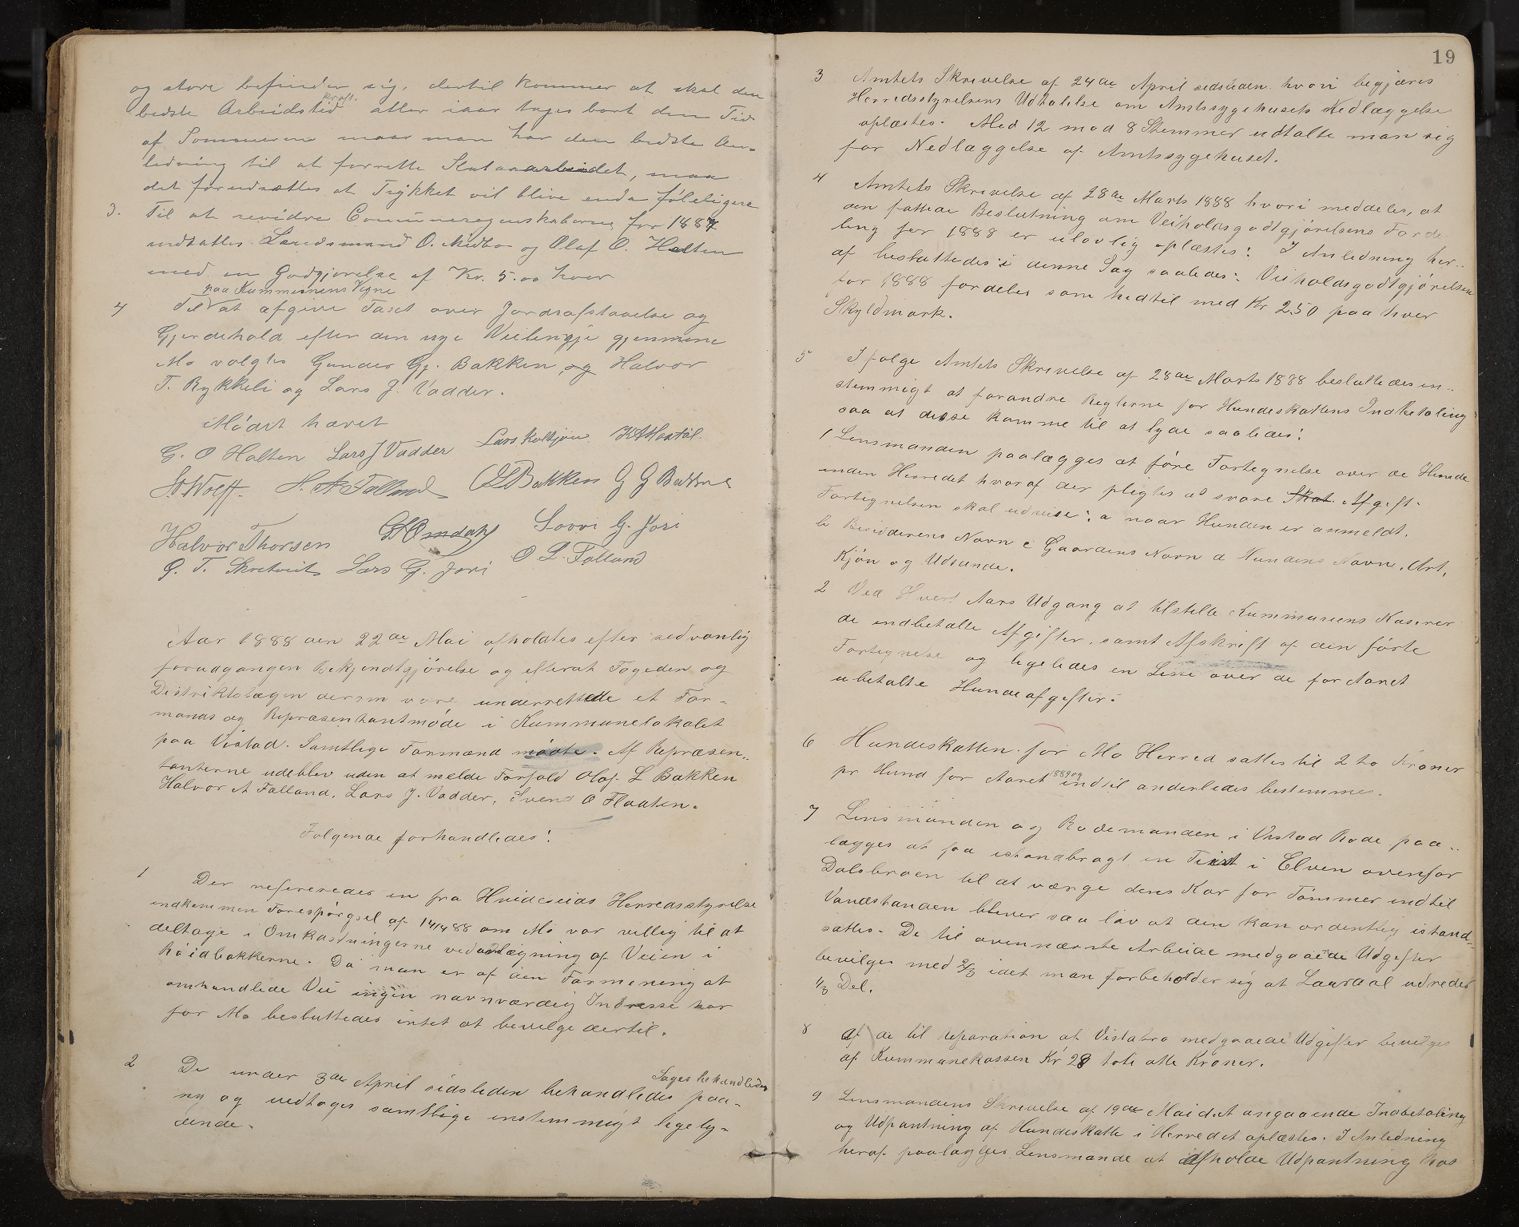 og store befinder sig, dertil kommer at skal den
bedste Arbeidstid kraft. atter iaar tages bort den Tid
af Sommeren naar man har den bedste An-
ledning til at forrette Skatarbeidet, maa
det forudsættes at Trykket vil blive endu føleligere
3. Til at revidre Communeregnskaberne for 1887
indsattes Lensmand O. Midbø og Olaf O. Holten
med en Godgjørelse af Kr. 5.00 hver
paa Kummunens Vegne
4 Til at afgive Taxt over Jordafstaaelse og
Gjerdehold efter den nye Veilengje gjennem
Mo valgtes Gunder Gj. Bakken, og Halvor
T. Rykkeli og Lars J. Vadder.
Mødet hævet
G. O Holten Lars J Vadder Lars
St. Wolff. H. A Falland OLBakken G G Bakken
Halvor Thorsen Sveen G. Jori
G. T. Skretveit Lars G. Jori O L. Falland
Aar 1888 den 22de Mai afholdtes efter sedvanlig
forudgangen Bekjendtgjørelse og efterat Fogeden og
Distriktslægen derom vare underrettede et For-
mands og Repræsentantmøde i Kummunelokalet
paa Vistad. Samtlige Formænd mødte. Af Repræsen-
tanterne udeblev uden at melde Forfald Olaf L Bakken
Halvor A Falland, Lars J. Vadder, Svend O Flaaten.
Følgende forhandledes:
1 Der refereredes en fra Hvideseids Herredsstyrelse
indkommen Forespørgsel af 14/4 88 om Mo var villig til at
deltage i Omkostningerne ved anlægning af Veien i
høidbakkerne. Da man er af den Formening at
omhandlede Vei ingen navnværdig Intresse har
for Mo besluttedes intet at bevilge dertil.
2 De under 3de April sidsleden behandledes Sager behandledes paa-
ny og vedtoges samtlige enstemmigt ligely-
dende.
19
3 Amtets Skrivelse af 24de April sidsleden hvori begjæres
Herredsstyrelsens Udtalelse om Amtssygehusets Nedlæggelse
oplæstes. Med 12 mod 8 Stemmer udtalte man sig
for Nedlæggelse af Amtssygehuset.
4 Amtets Skrivelse af 28de Marts 1888 hvori meddeles, at
den fattede Beslutning om Veiholdsgodtgjørelsens Forde-
ling for 1888 er ulovlig oplæstes: I Anledning her-
af besluttedes i denne Sag saaledes: Veiholdsgodtgjørelsen
for 1888 fordeles som hidtil med Kr 2.50 paa hver
Skyldmark.
5 Ifølge Amtets Skrivelse af 28de Marts 1888 besluttedes en-
stemmigt at forandre Reglerne for Hundeskattens Indbetaling
saa at disse komme til at lyde saaledes:
1 Lensmanden paalægges at føre Fortegnelse over de Hunde
inden Herredet hvoraf der pligtes at svare Skat Afgift.
Fortegnelsen skal udvise: a naar Hunden er anmeldt.
b Beviderens Navn c Gaardens Navn d Hundens Navn, Art,
Kjøn og Udseende.
2 Ved Hvert Aars Udgang at tilstille Kummunens Kaserer
de indbetalte Afgifter samt Afskrift af den førte
Fortegnelse og ligeledes en Liste over de for Aaret
ubetalte Hundeafgifter.
6 Hundeskatten for Mo Herred sattes til 2 to Kroner
pr Hund for Aaret 1889 og indtil anderledes bestemmes.
7 Lensmanden og Rodemanden i Vistad Rode paa-
lægges at faa istandbragt en Teist i Elven ovenfor
Dalsbroen til at værge dens Kar for Tømmer indtil
Vandstanden bliver saa lav at den kan ordentlig istand-
sættes. De til ovennævnte Arbeide medgaaede Udgifter
bevilges med 2/3 idet man forbeholder sig at Laurdal udreder
1/3 Del.
8 Af de til reparation at Vistabro medgaaede Udgifter bevilges
af Kummunekassen Kr 28 tote otte Kroner.
9 Lensmandens Skrivelse af 19de Mai det angaaende Indbetaling
og Udpantning af Hundeskatte i Herredet oplæstes. I Anledning
heraf paalægges Lensmande at afholde Udpantning hos